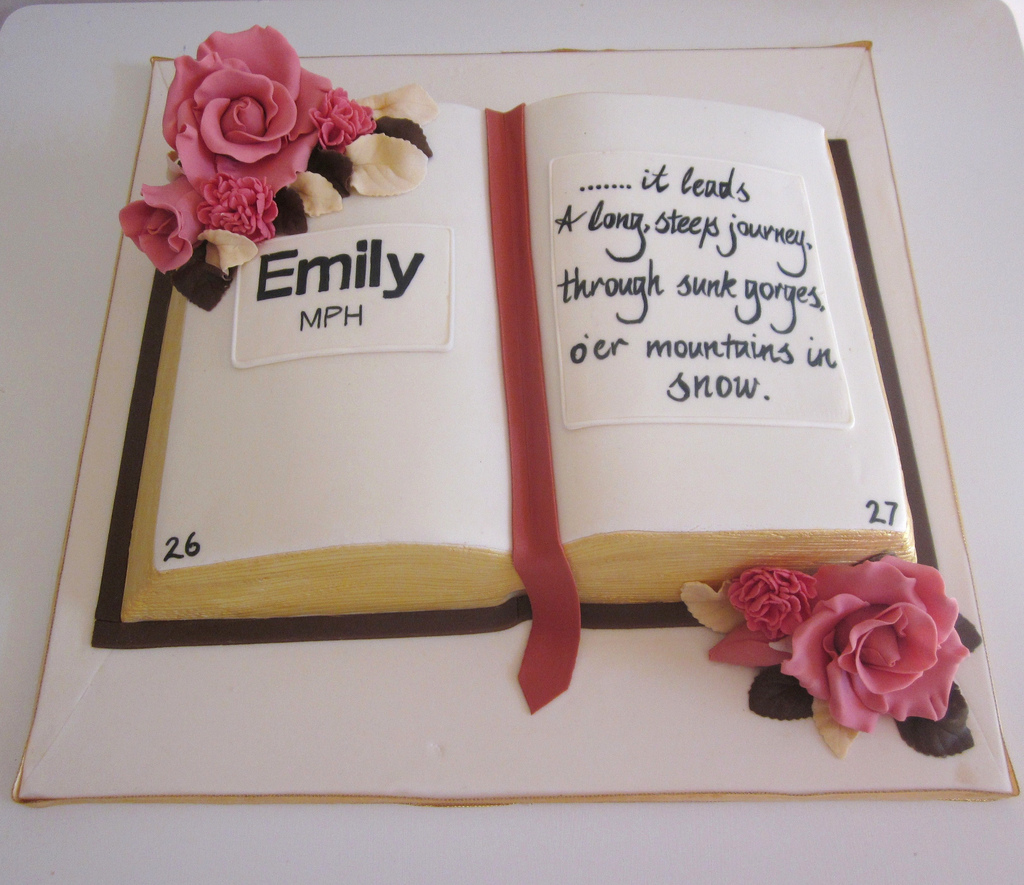 Emily
MPH
26
....... it leads
A long, steep journey,
through sunk gorges,
o'er mountains in
snow.
27